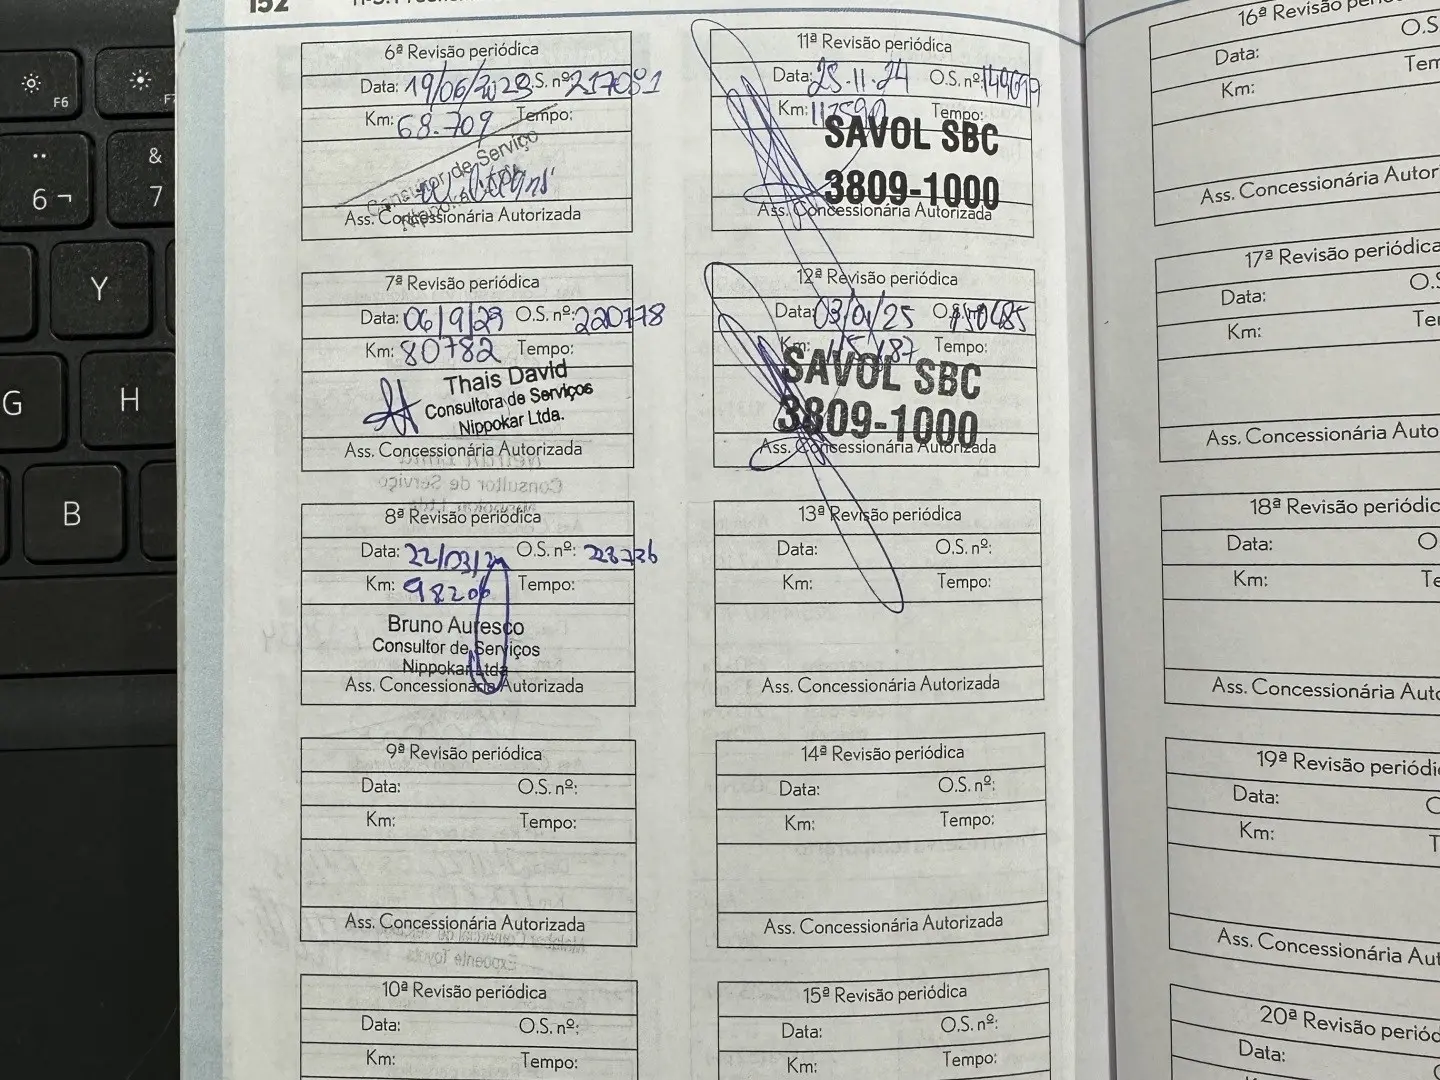 152
F6
6 ¬
&
7
Y
G
H
B
6ª Revisão periódica
Data: 19/06/2023 O.S. nº 217081
Km: 68.709 Tempo:
Consultor de Serviço
Ass. Concessionária Autorizada
7ª Revisão periódica
Data: 06/9/23 O.S. nº: 220778
Km: 80782 Tempo:
Thais David
Consultora de Serviços
Nippokar Ltda.
Ass. Concessionária Autorizada
8ª Revisão periódica
Data: 22/03/24 O.S. nº: 228736
Km: 98206 Tempo:
Bruno Auresco
Consultor de Serviços
Nippokar Ltda
Ass. Concessionária Autorizada
9ª Revisão periódica
Data: O.S. nº:
Km: Tempo:
Ass. Concessionária Autorizada
10ª Revisão periódica
Data: O.S. nº:
Km: Tempo:
11ª Revisão periódica
Data: O.S. nº:
Km: Tempo:
SAVOL SBC
3809-1000
Ass. Concessionária Autorizada
12ª Revisão periódica
Data: 03/01/25
Km: Tempo:
SAVOL SBC
3809-1000
Ass. Concessionária Autorizada
13ª Revisão periódica
Data: O.S. nº:
Km: Tempo:
Ass. Concessionária Autorizada
14ª Revisão periódica
Data: O.S. nº:
Km: Tempo:
Ass. Concessionária Autorizada
15ª Revisão periódica
Data: O.S. nº:
Km: Tempo:
16ª Revisão
Data: O.S.
Km: Tem
Ass. Concessionária Autor
17ª Revisão periódica
Data: O.S
Km: Te
Ass. Concessionária Auto
18ª Revisão periódic
Data: O
Km: Te
Ass. Concessionária Aut
19ª Revisão periódi
Data:
Km: T
Ass. Concessionária Aut
20ª Revisão periód
Data: